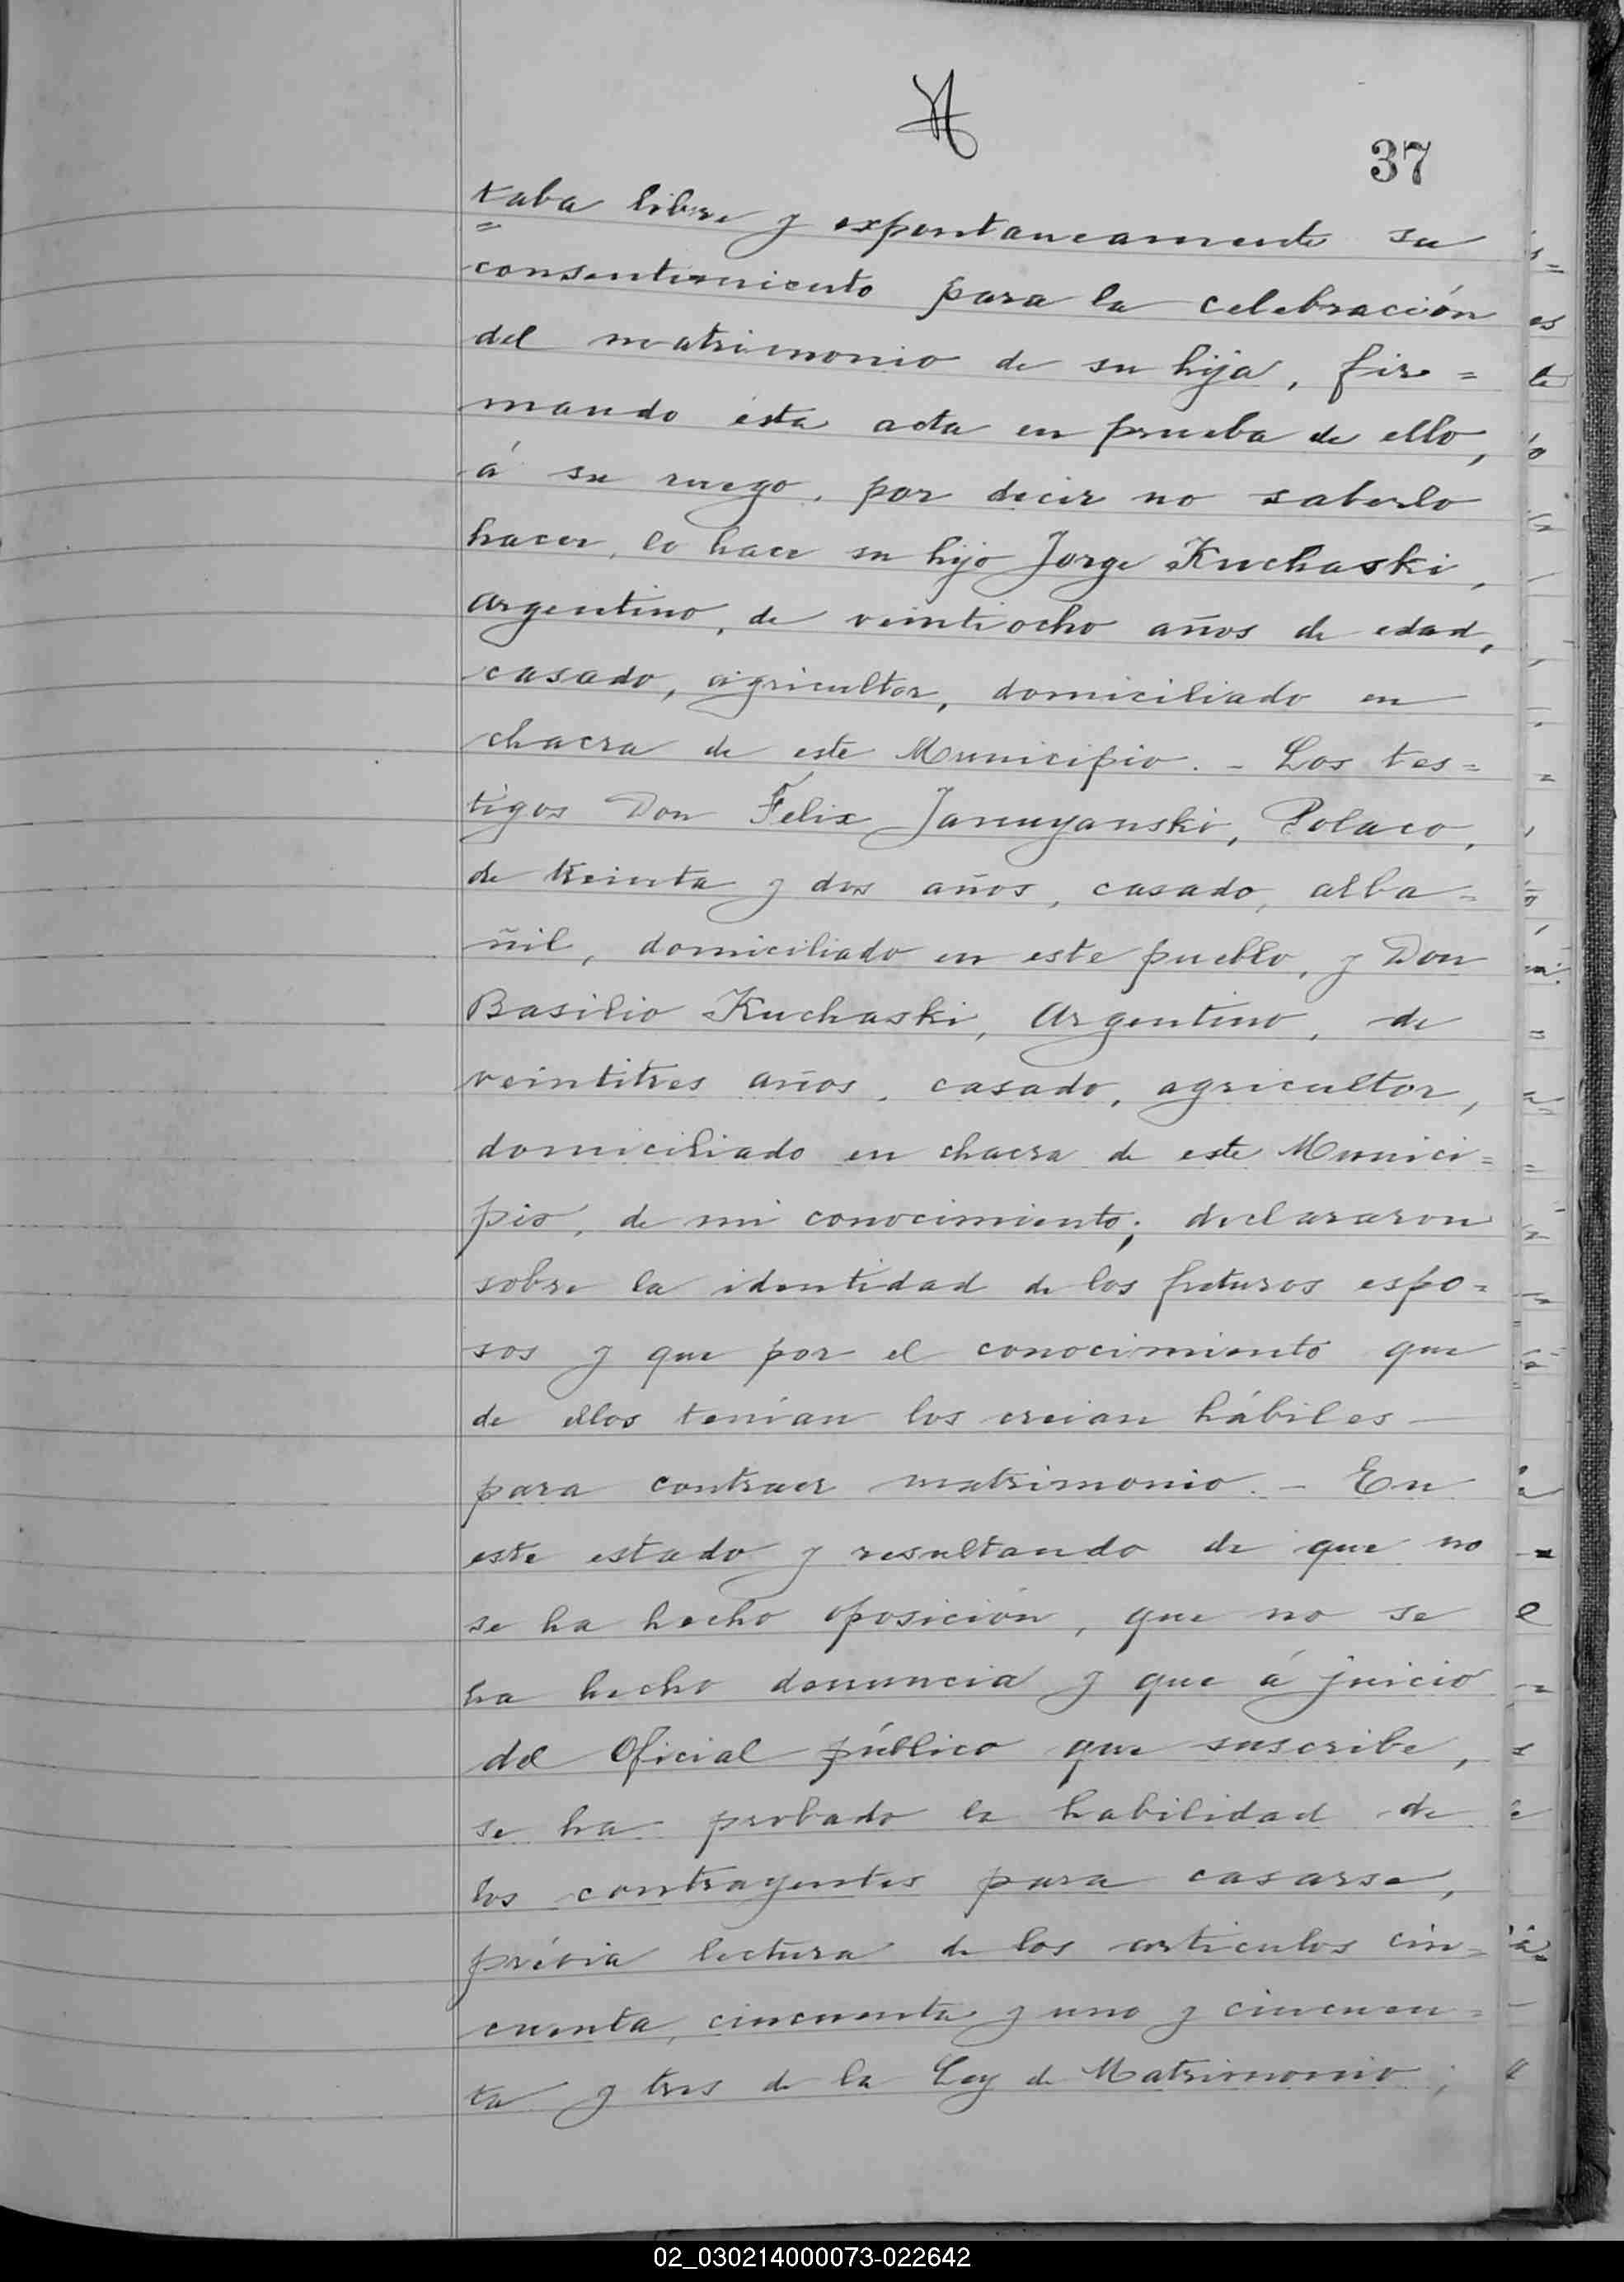 37
taba libre y expontaneamente su
=
consentimiento para la celebración
del matrimonio de su hija, fir=
mando ésta acta en prueba de ello,
á su ruego, por decir no saberlo
hacer, lo hace su hijo Jorge Kuchaski,
argentino, de veintiocho años de edad,
casado, agricultor, domiciliado en
chacra de este Municipio. - Los tes=
tigos Don Felix Januyanski, Polaco,
de treinta y dos años, casado, alba=
ñil, domiciliado en este pueblo, y Don
Basilio Kuchaski, Argentino, de
veintitres años, casado, agricultor,
domiciliado en chacra de este Munici=
pio, de mi conocimiento; declararon
sobre la identidad de los futuros espo=
sos y que por el conocimiento que
de ellos tenían los creian hábiles —
para contraer matrimonio. - En
este estado y resultando de que no
se ha hecho oposición, que no se
ha hecho denuncia y que á juicio
del Oficial público que suscribe,
se ha probado la habilidad de
los contrayentes para casarse,
prévia lectura de los articulos cin=
cuenta, cincuenta y uno y cincuen=
ta y tres de la Ley de Matrimonio;
02_030214000073-022642